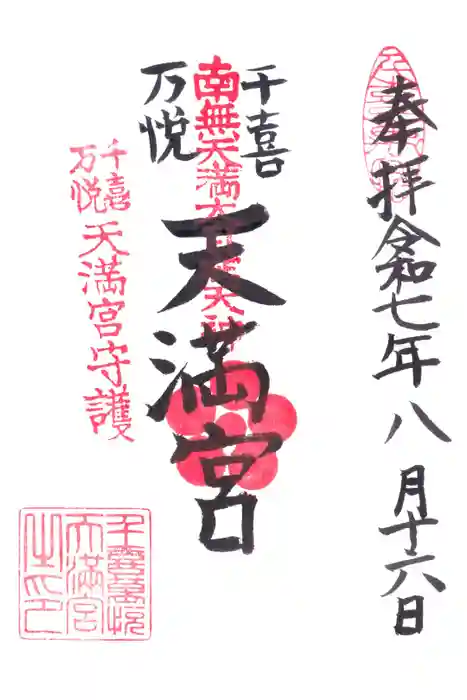 奉拝
令和七年八月十六日
千喜
万悦
天満宮
南無天満大自在天神
千喜
万悦
天満宮守護
千喜万悦
天満宮
之印